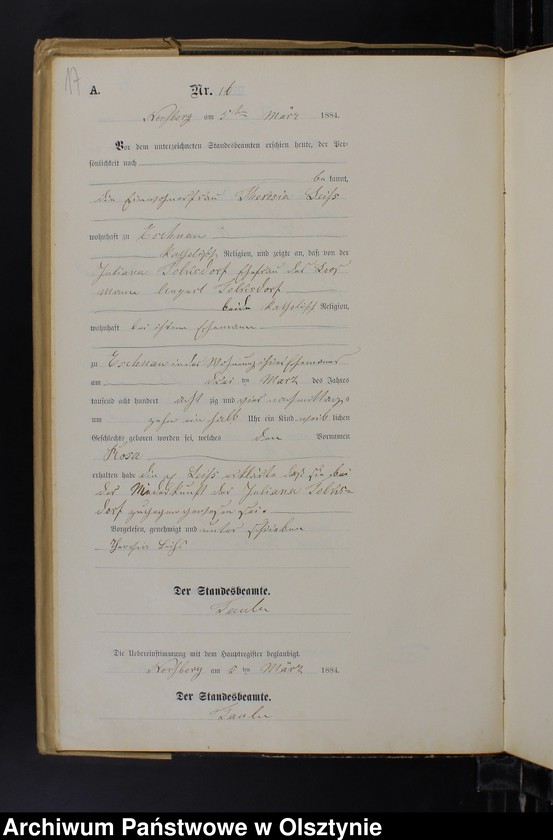 17
A. Nr. 16
am 5ten März 1884.
Vor dem unterzeichneten Standesbeamten erschien heute, der Per-
sönlichkeit nach
be kannt,
die Einwohnerfrau Theresia Leiss
wohnhaft zu Eschnau
katholisch Religion, und zeigte an, daß von der
Juliana Ehefrau des
mann August
beide katholisch Religion,
wohnhaft bei ihrem Ehemann
zu Eschnau in der Wohnung ihres Ehemannes
am drei ten März des Jahres
tausend acht hundert acht zig und vier nachmittags
um zehn ein halb Uhr ein Kind weib lichen
Geschlechts geboren worden sei, welches den Vornamen
Rosa
erhalten habe die Leiss erklärte daß sie bei
der Niederkunft der Juliana
dorf zugegen gewesen sei.
Vorgelesen, genehmigt und unter schrieben
Der Standesbeamte.
Die Uebereinstimmung mit dem Hauptregister beglaubigt.
am 5 ten März 1884.
Der Standesbeamte.
Archiwum Państwowe w Olsztynie